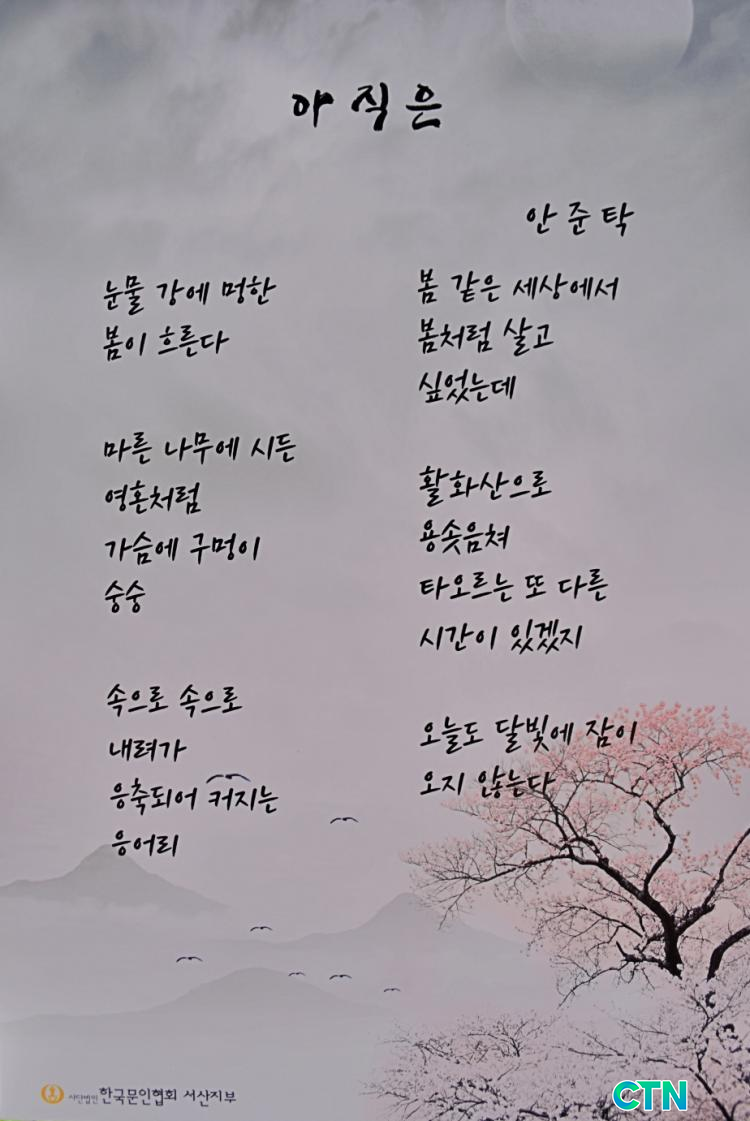 아직은
안준탁
눈물 강에 멍한
봄이 흐른다
마른 나무에 시든
영혼처럼
가슴에 구멍이
숭숭
속으로 속으로
내려가
응축되어 커지는
응어리
봄 같은 세상에서
봄처럼 살고
싶었는데
활화산으로
용솟음쳐
타오르는 또 다른
시간이 있겠지
오늘도 달빛에 잠이
오지 않는다
사단법인 한국문인협회 서산지부
CTN